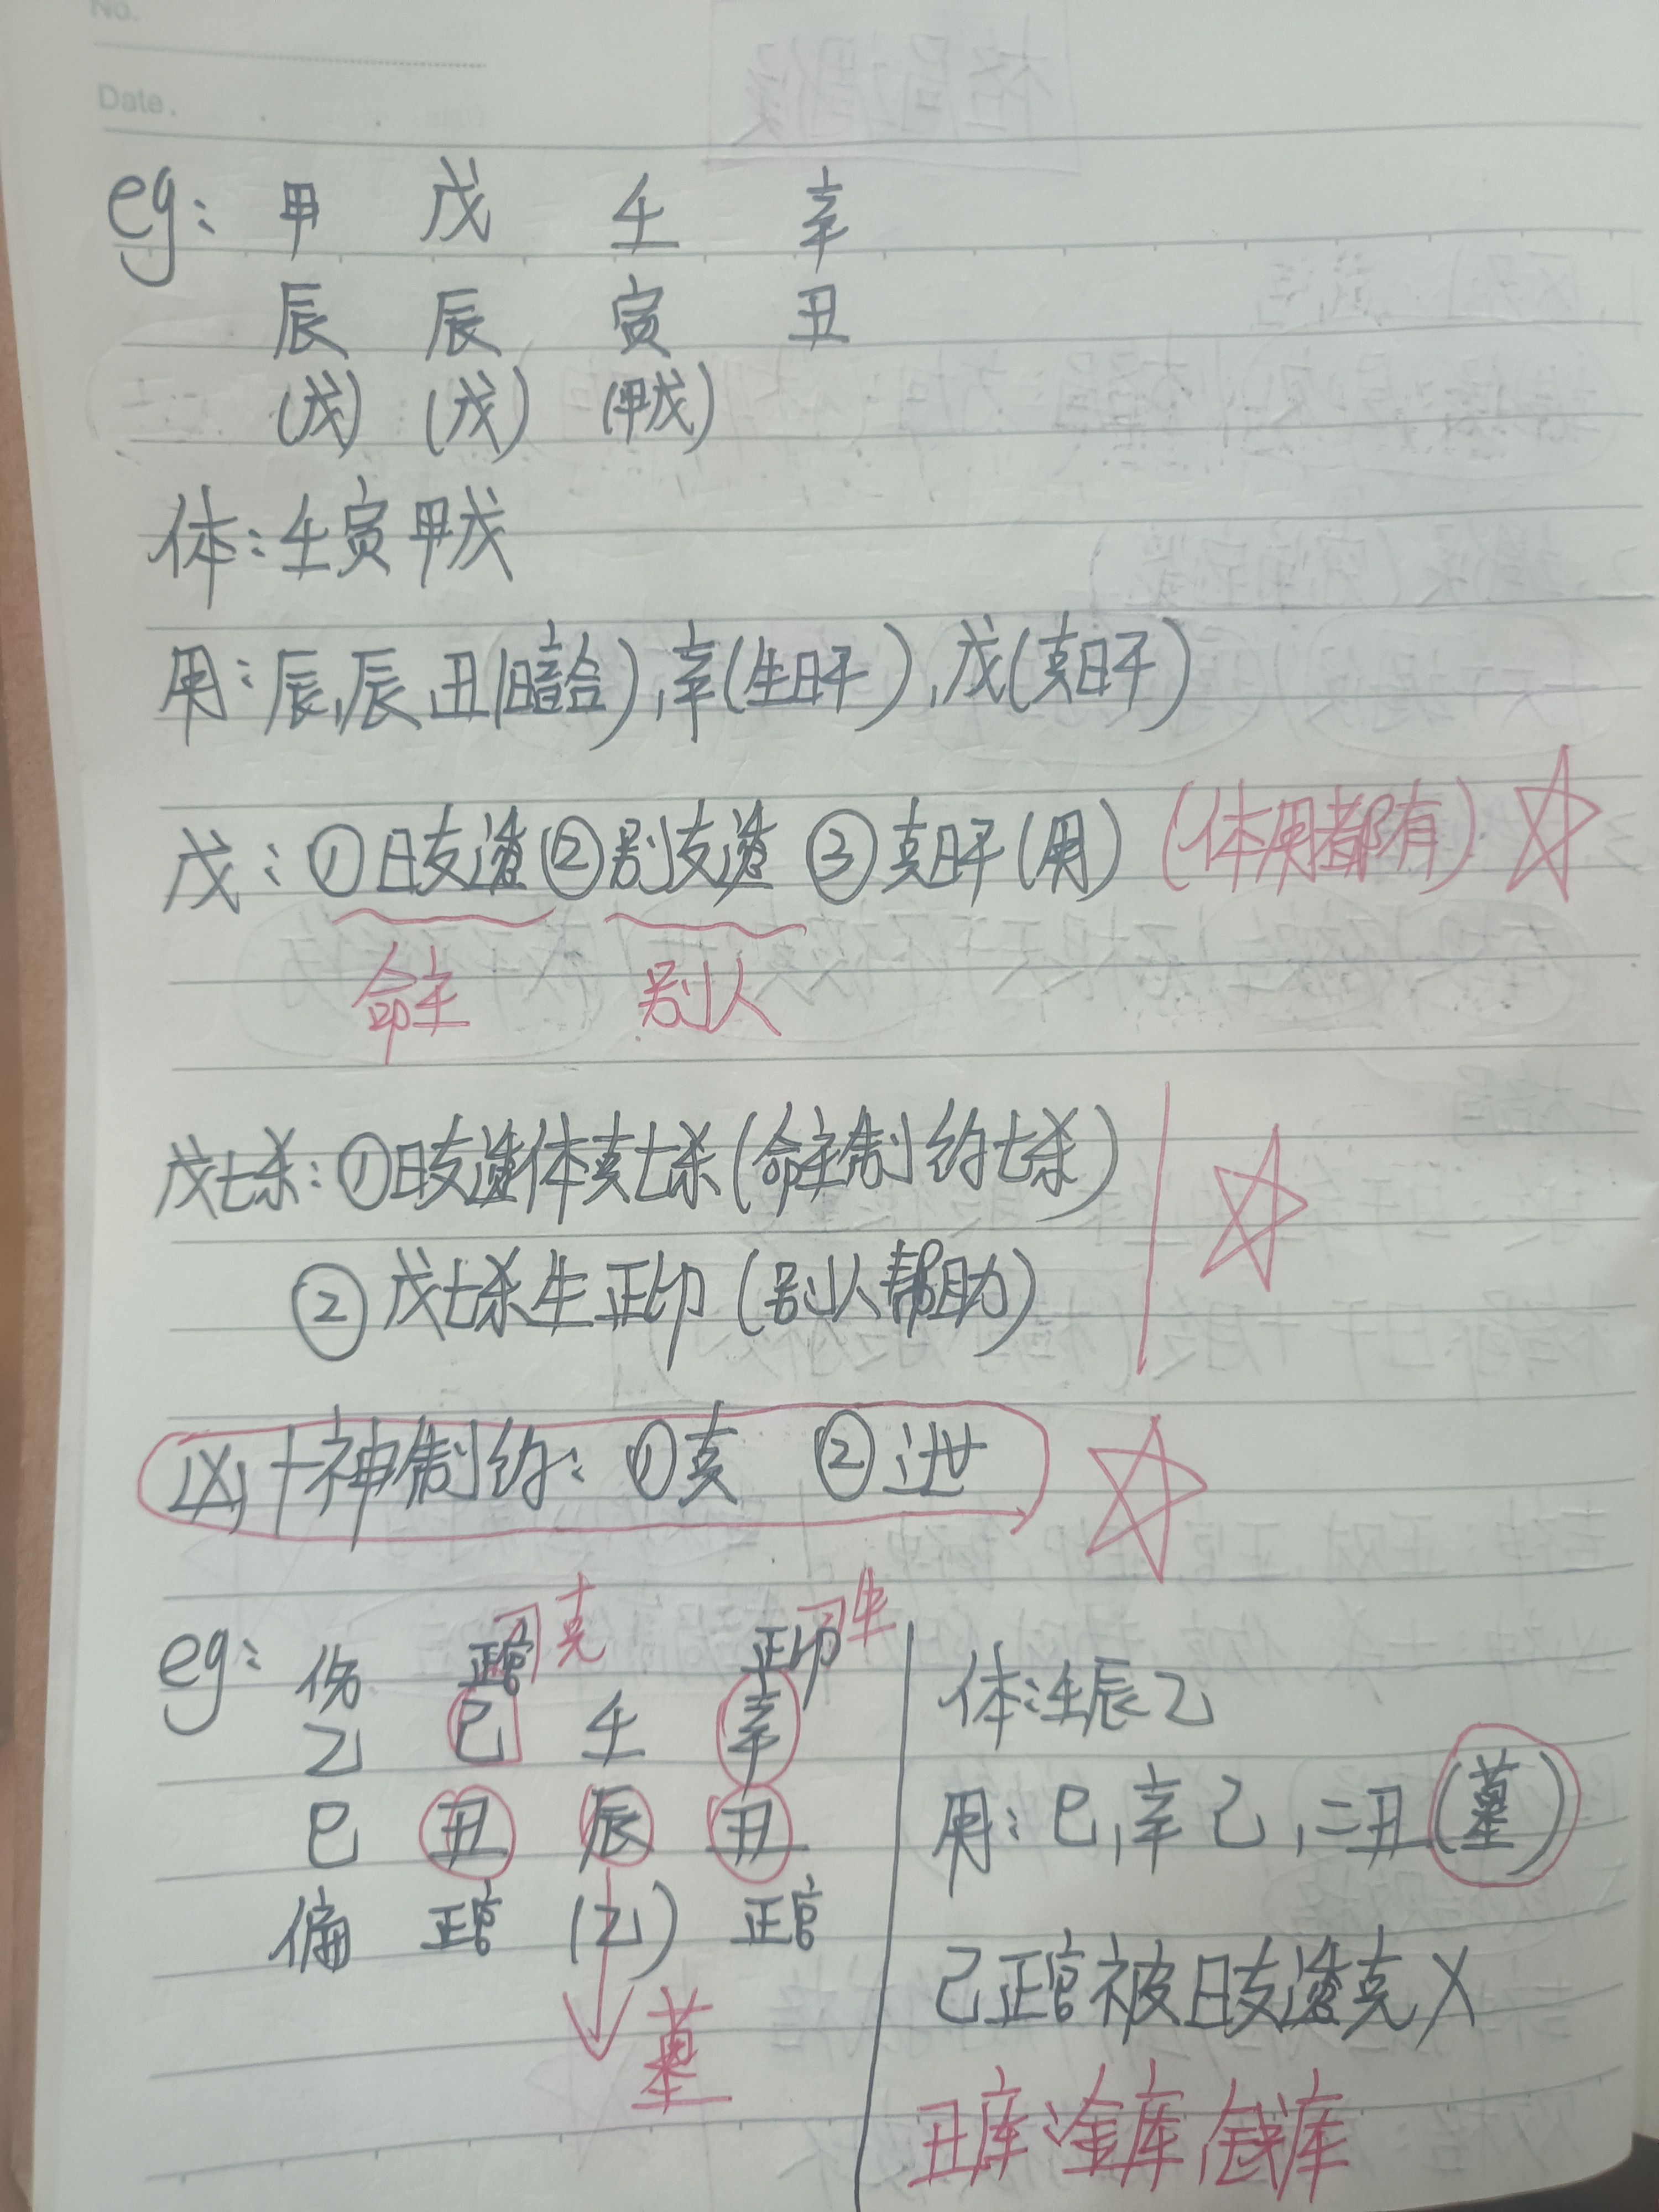 No.
Date.
eg: 甲 戊 壬 辛
辰 辰 寅 丑
(戊) (戊) (甲戊)
体:壬寅甲戊
用:辰,辰,丑(暗合),辛(生日干),戊(克日干)
戊:①日支透②别支透 ③克日干(用) (体用都有)
命主 别人
戊七杀:①日支透体克七杀(命主制约七杀)
②戊七杀生正印(别人帮助)
凶十神制约:①克 ②泄
克 生
eg: 伤 正官 正印
乙 己 壬 辛
巳 丑 辰 丑
偏 正官 (乙) 正官
墓
体:壬辰乙
用:巳,辛己,二丑(墓)
己正官被日支透克X
丑库:金库,钱库